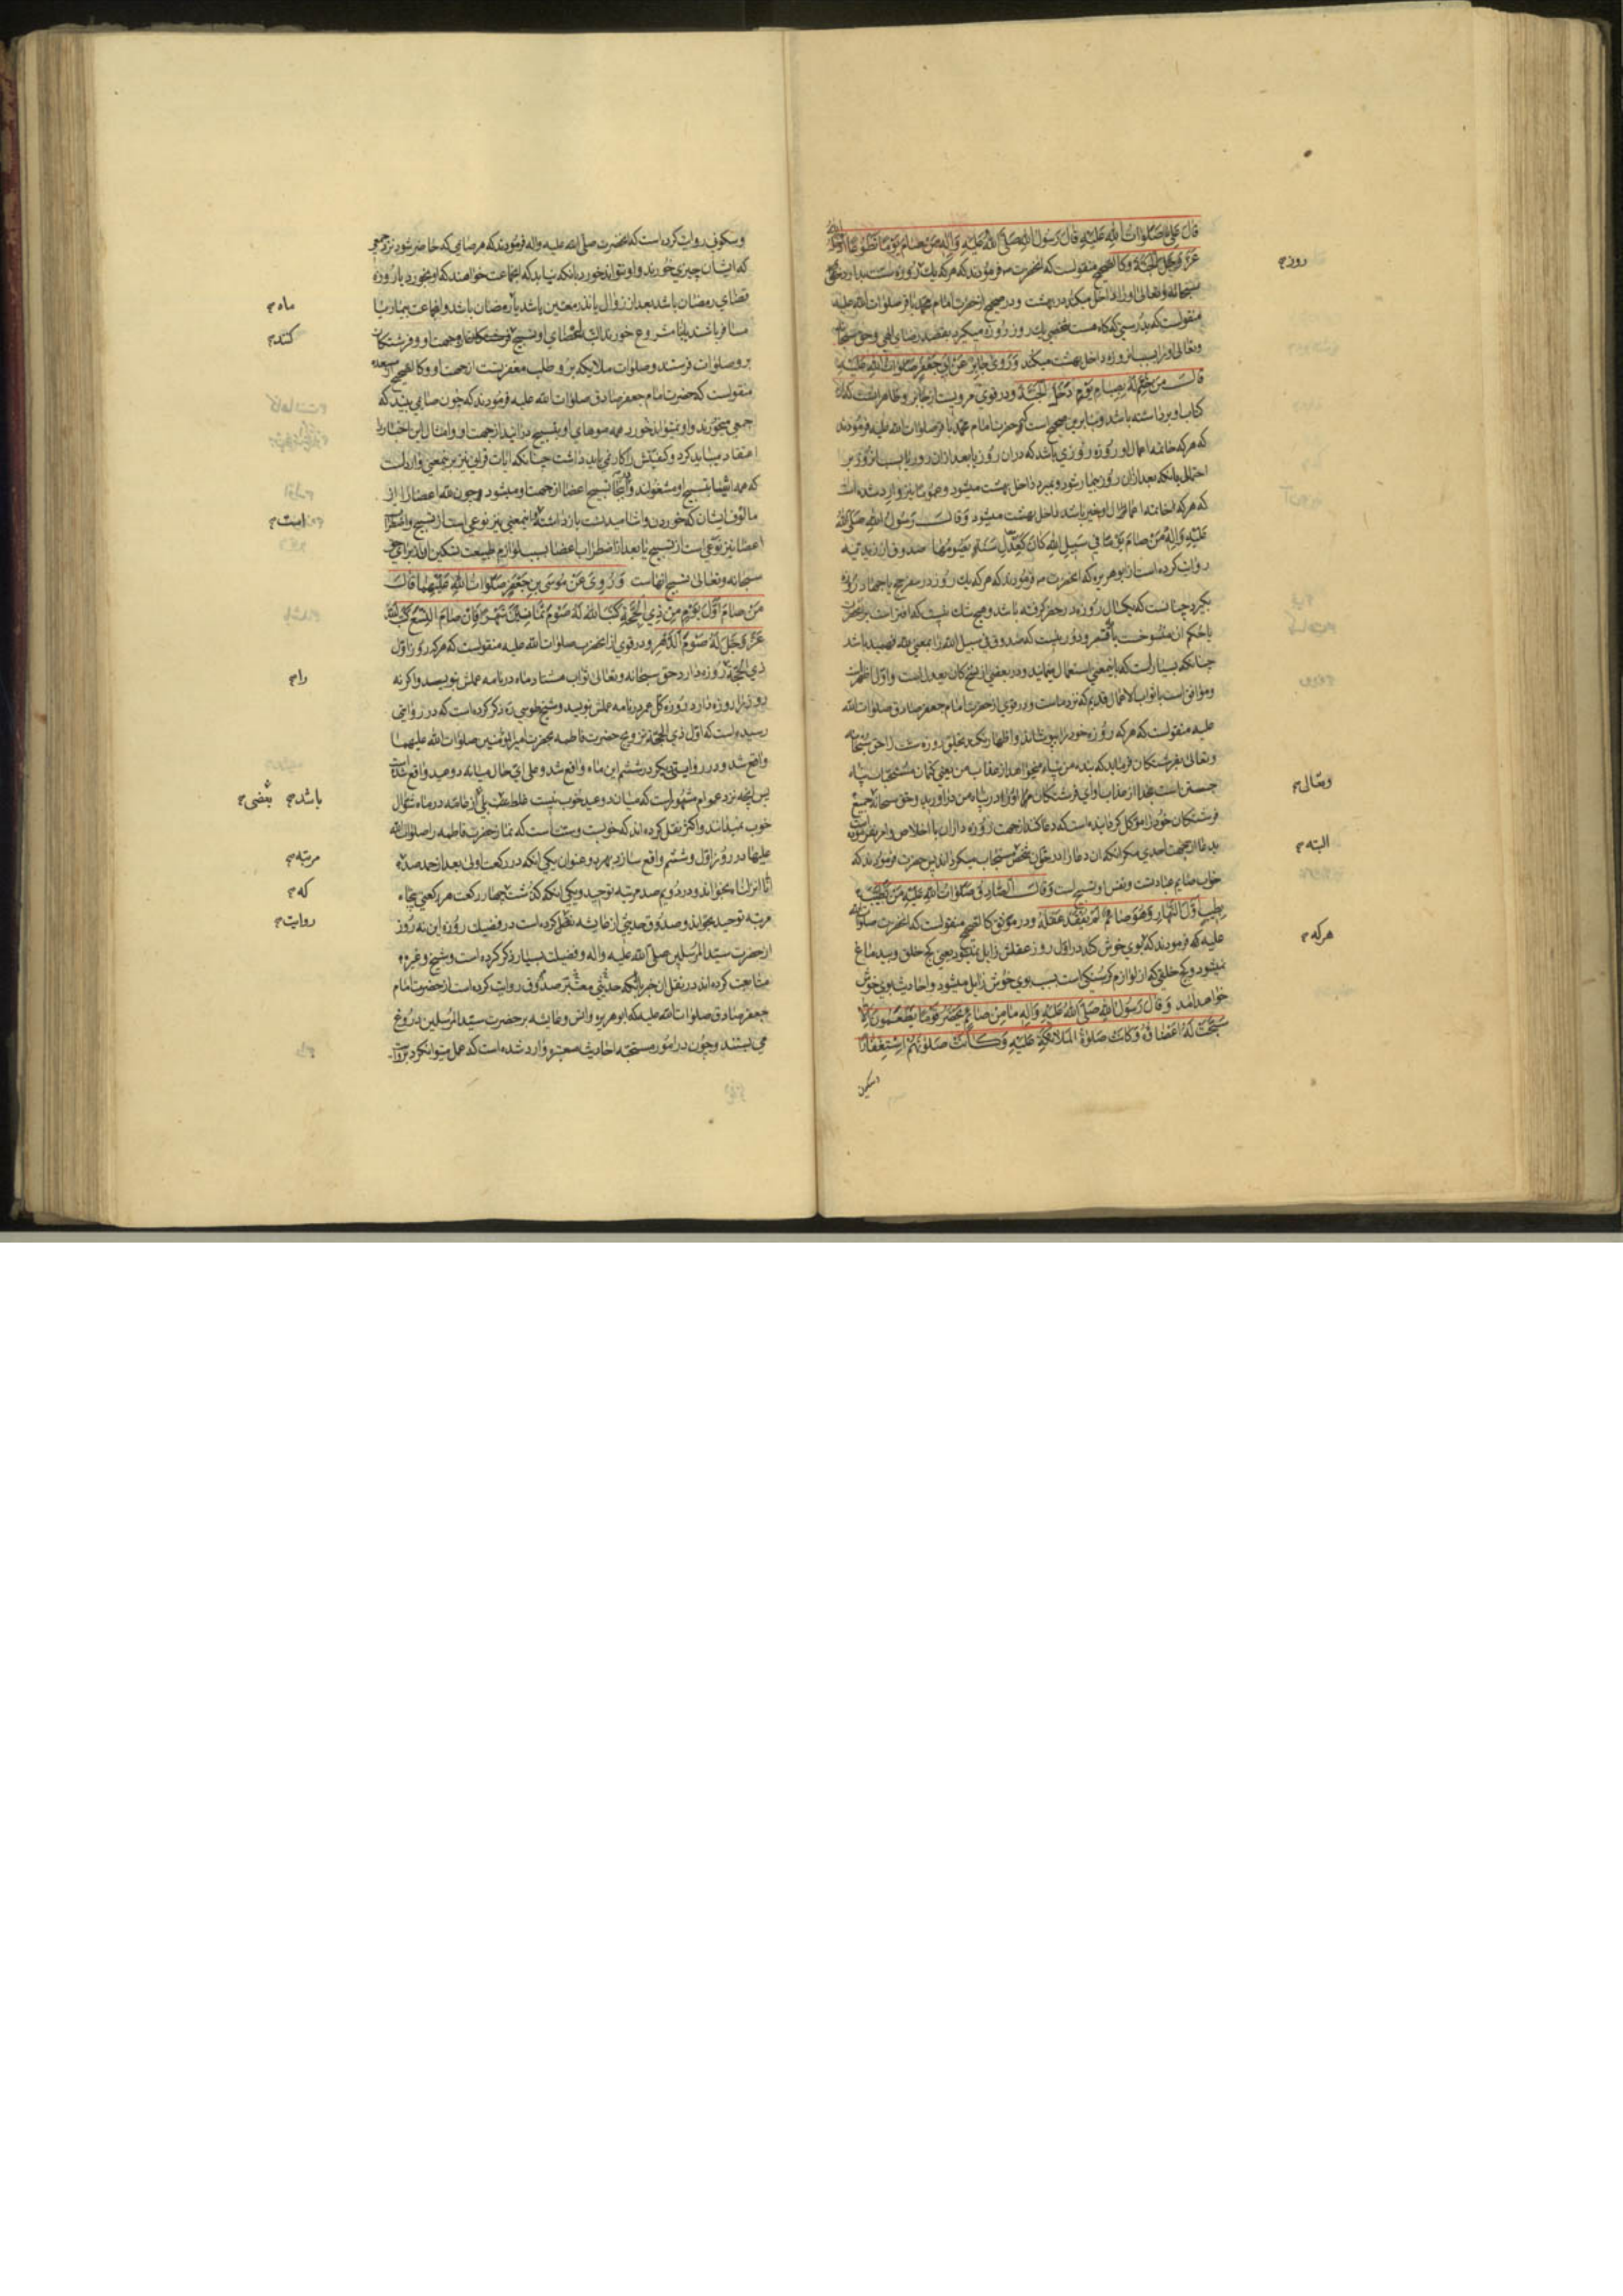 قال علي صلوات الله عليه قال رسول الله صلى الله عليه واله من صام يوما تطوعا ادخله الله
عز وجل الجنة وكالصحيح منقولست كه انحضرت ص فرمودند كه هركه يك روزه سنت بدارد حق
سبحانه وتعالى او را داخل ميكند در بهشت ودر صحيح از حضرت امام محمد باقر صلوات الله عليه
منقولست كه بدرستي كه كاه هست شخصي يك روز روزه ميكيرد بقصد رضاي الهي وحق سبحانه
وتعالى او را بسبب ان روزه داخل بهشت ميكند وروى جابر عن ابي جعفر صلوات الله عليه
قال من ختم له بصيام يوم دخل الجنة ودر قوي مرويست از جابر وظاهرا
كتاب او برداشته باشد وبنابرين صحيح است كه حضرت امام محمد باقر صلوات الله عليه فرمودند
كه هركه خاتمه اعمال او روزه روزي باشد كه دران روز يا بعد ازان روز
احتمال بانكه بعد ازان روز بيمار شود وبميرد داخل بهشت ميشود وعموما نيز وارد شده است
كه هركه خاتمه اعمال او بخير باشد داخل بهشت ميشود وقال رسول الله صلى الله
عليه واله من صام يوما في سبيل الله كان كعدل سنة يصومها صدوق
روايت كرده است از ابو هريره كه انحضرت ص فرمودند كه هركه يك روز در سفر حج يا جهاد روزه
بكيرد چنانست كه يكسال روزه در حضر كرفته باشد
چنانكه بسيار است كه باينمعني استعمال مينمايند ودر بعضي از نسخ كان يعدل است واول اظهر است
وموافق است با ثواب الاعمال قديم كه نزد ماست ودر قوي از حضرت امام جعفر صادق صلوات الله
عليه منقولست كه هركه روزه خود را بپوشاند واظهار نكند بخلق روزه خود را حق سبحانه
وتعالى بفرشتكان فرمايد كه بنده من پناه ميخواهد از عذاب من
جستن است بخدا از عذاب او اي فرشتكان من او را در پناه من در اوريد وحق سبحانه جميع
فرشتكان خود را موكل كردانيده است كه دعا كنند از جهت روزه داران با اخلاص وامر نفرموده است
بدعا از جهت احدي مكر انكه ان دعا را در حق ان شخص مستجاب ميكرداند پس حضرت فرمودند كه
خواب صايم عبادتست ونفس او تسبيح است وقال الصادق صلوات الله عليه من تطيب
بطيب اول النهار وهو صائم لم يفقد عقله ودر موثق كالصحيح منقولست كه انحضرت صلوات الله
عليه كه فرمودند كه بوي خوش كند در اول روز عقلش زايل نميكردد يعني كج خلق وبيدماغ
نميشود وكج خلقي كه از لوازم كرسنكي است بسبب بوي خوش زايل ميشود واحاديث بوي خوش
خواهد امد وقال رسول الله صلى الله عليه واله ما من صائم يحضر قوما يطعمون الا
سبحت له اعضاؤه وكانت صلوة الملائكة عليه وكانت صلوتهم استغفارا
روز
وتعالى
البته
هركه
وسكوني روايت كرده است كه انحضرت صلى الله عليه واله فرمودند كه هر صايمي كه حاضر شود نزد جمعي
كه ايشان چيزي خورند واو نتواند خورد بانكه نيايد كه انجماعت خواهند كه او بخورد يا روزه
قضاي رمضان باشد بعد از زوال يا نذر معين باشد يا رمضان باشد وانجماعت بيمار يا
مسافر باشند يا نامشروع خورند البته اعضاي او تسبيح
برو صلوات فرستند وصلوات ملايكه برو طلب مغفرتست از جهت او وكالصحيح از
منقولست كه حضرت امام جعفر صادق صلوات الله عليه فرمودند كه چون صايمي بيند كه
جمعي ميخورند واو نميتواند خورد همه موهاي او بتسبيح درايند از جهت او وامثال اين اخبار را
اعتقاد ميبايد كرد وكيفيتش را كار نمي بايد داشت چنانكه ايات قراني نيز برينمعني وارد است
كه همه اشيا بتسبيح او مشغولند وايضا تسبيح اعضا از جهت او ميشود وچون الله اعضا را از
مالوف ايشان كه خوردن واشاميدنست باز داشته واينمعني نيز نوعي است از تسبيح واضطراب
اعضا نيز نوعي است از تسبيح يا بعد از اضطراب اعضا بسبب لوازم طبيعت تسكين
سبحانه وتعالى تسبيح انهاست وروى عن موسى بن جعفر صلوات الله عليهما قال
من صام اول يوم من ذي الحجة كتب الله له صوم ثمانين شهرا فان صام التسع كتب الله
عز وجل له صوم الدهر ودر قوي از انحضرت صلوات الله عليه منقولست كه هركه روز اول
ذي الحجة روزه دارد حق سبحانه وتعالى ثواب هشتاد ماه در نامه عملش نويسد واكر نه
روز را روزه دارد روزه كل عمر در نامه عملش نويسد وشيخ طوسي ره ذكر كرده است كه در روايتي
رسيده است كه اول ذي الحجة تزويج حضرت فاطمه بحضرت امير المؤمنين صلوات الله عليهما
واقع شد ودر روايتي ديكر در ششم اين ماه واقع شد وعلى اي حال ميانه دو عيد واقع شده است
پس انچه نزد عوام مشهور است كه ميان دو عيد خوب نيست غلط است بلي از عامه در ماه شوال
خوب نميدانند واكثر نقل كرده اند كه خوبست وسنتست كه نماز حضرت فاطمه را صلوات الله
عليها در روز اول وششم واقع سازد بهر دو عنوان يكي انكه در ركعت اولى بعد از حمد صد
انا انزلناه بخواند ودر دويم صد مرتبه توحيد ويكي انكه كذشت چهار ركعت هر ركعتي پنجاه
مرتبه توحيد بخواند وصدوق حديثي از عايشه نقل كرده است در فضيلت روزه اين نه روز
از حضرت سيد المرسلين صلى الله عليه واله وفضيلت بسيار ذكر كرده است وشيخ وغيره
متابعت كرده اند در نقل ان خبر با انكه حديثي معتبر صدوق روايت كرده است از حضرت امام
جعفر صادق صلوات الله عليه كه ابو هريره وانس وعايشه بر حضرت سيد المرسلين دروغ
مي بستند وچون در امور مستحبه احاديث معتبره وارد شده است كه عمل ميتوان كرد
ماه
كنند
است
را
باشد بعضى
مرتبه
كه
روايت